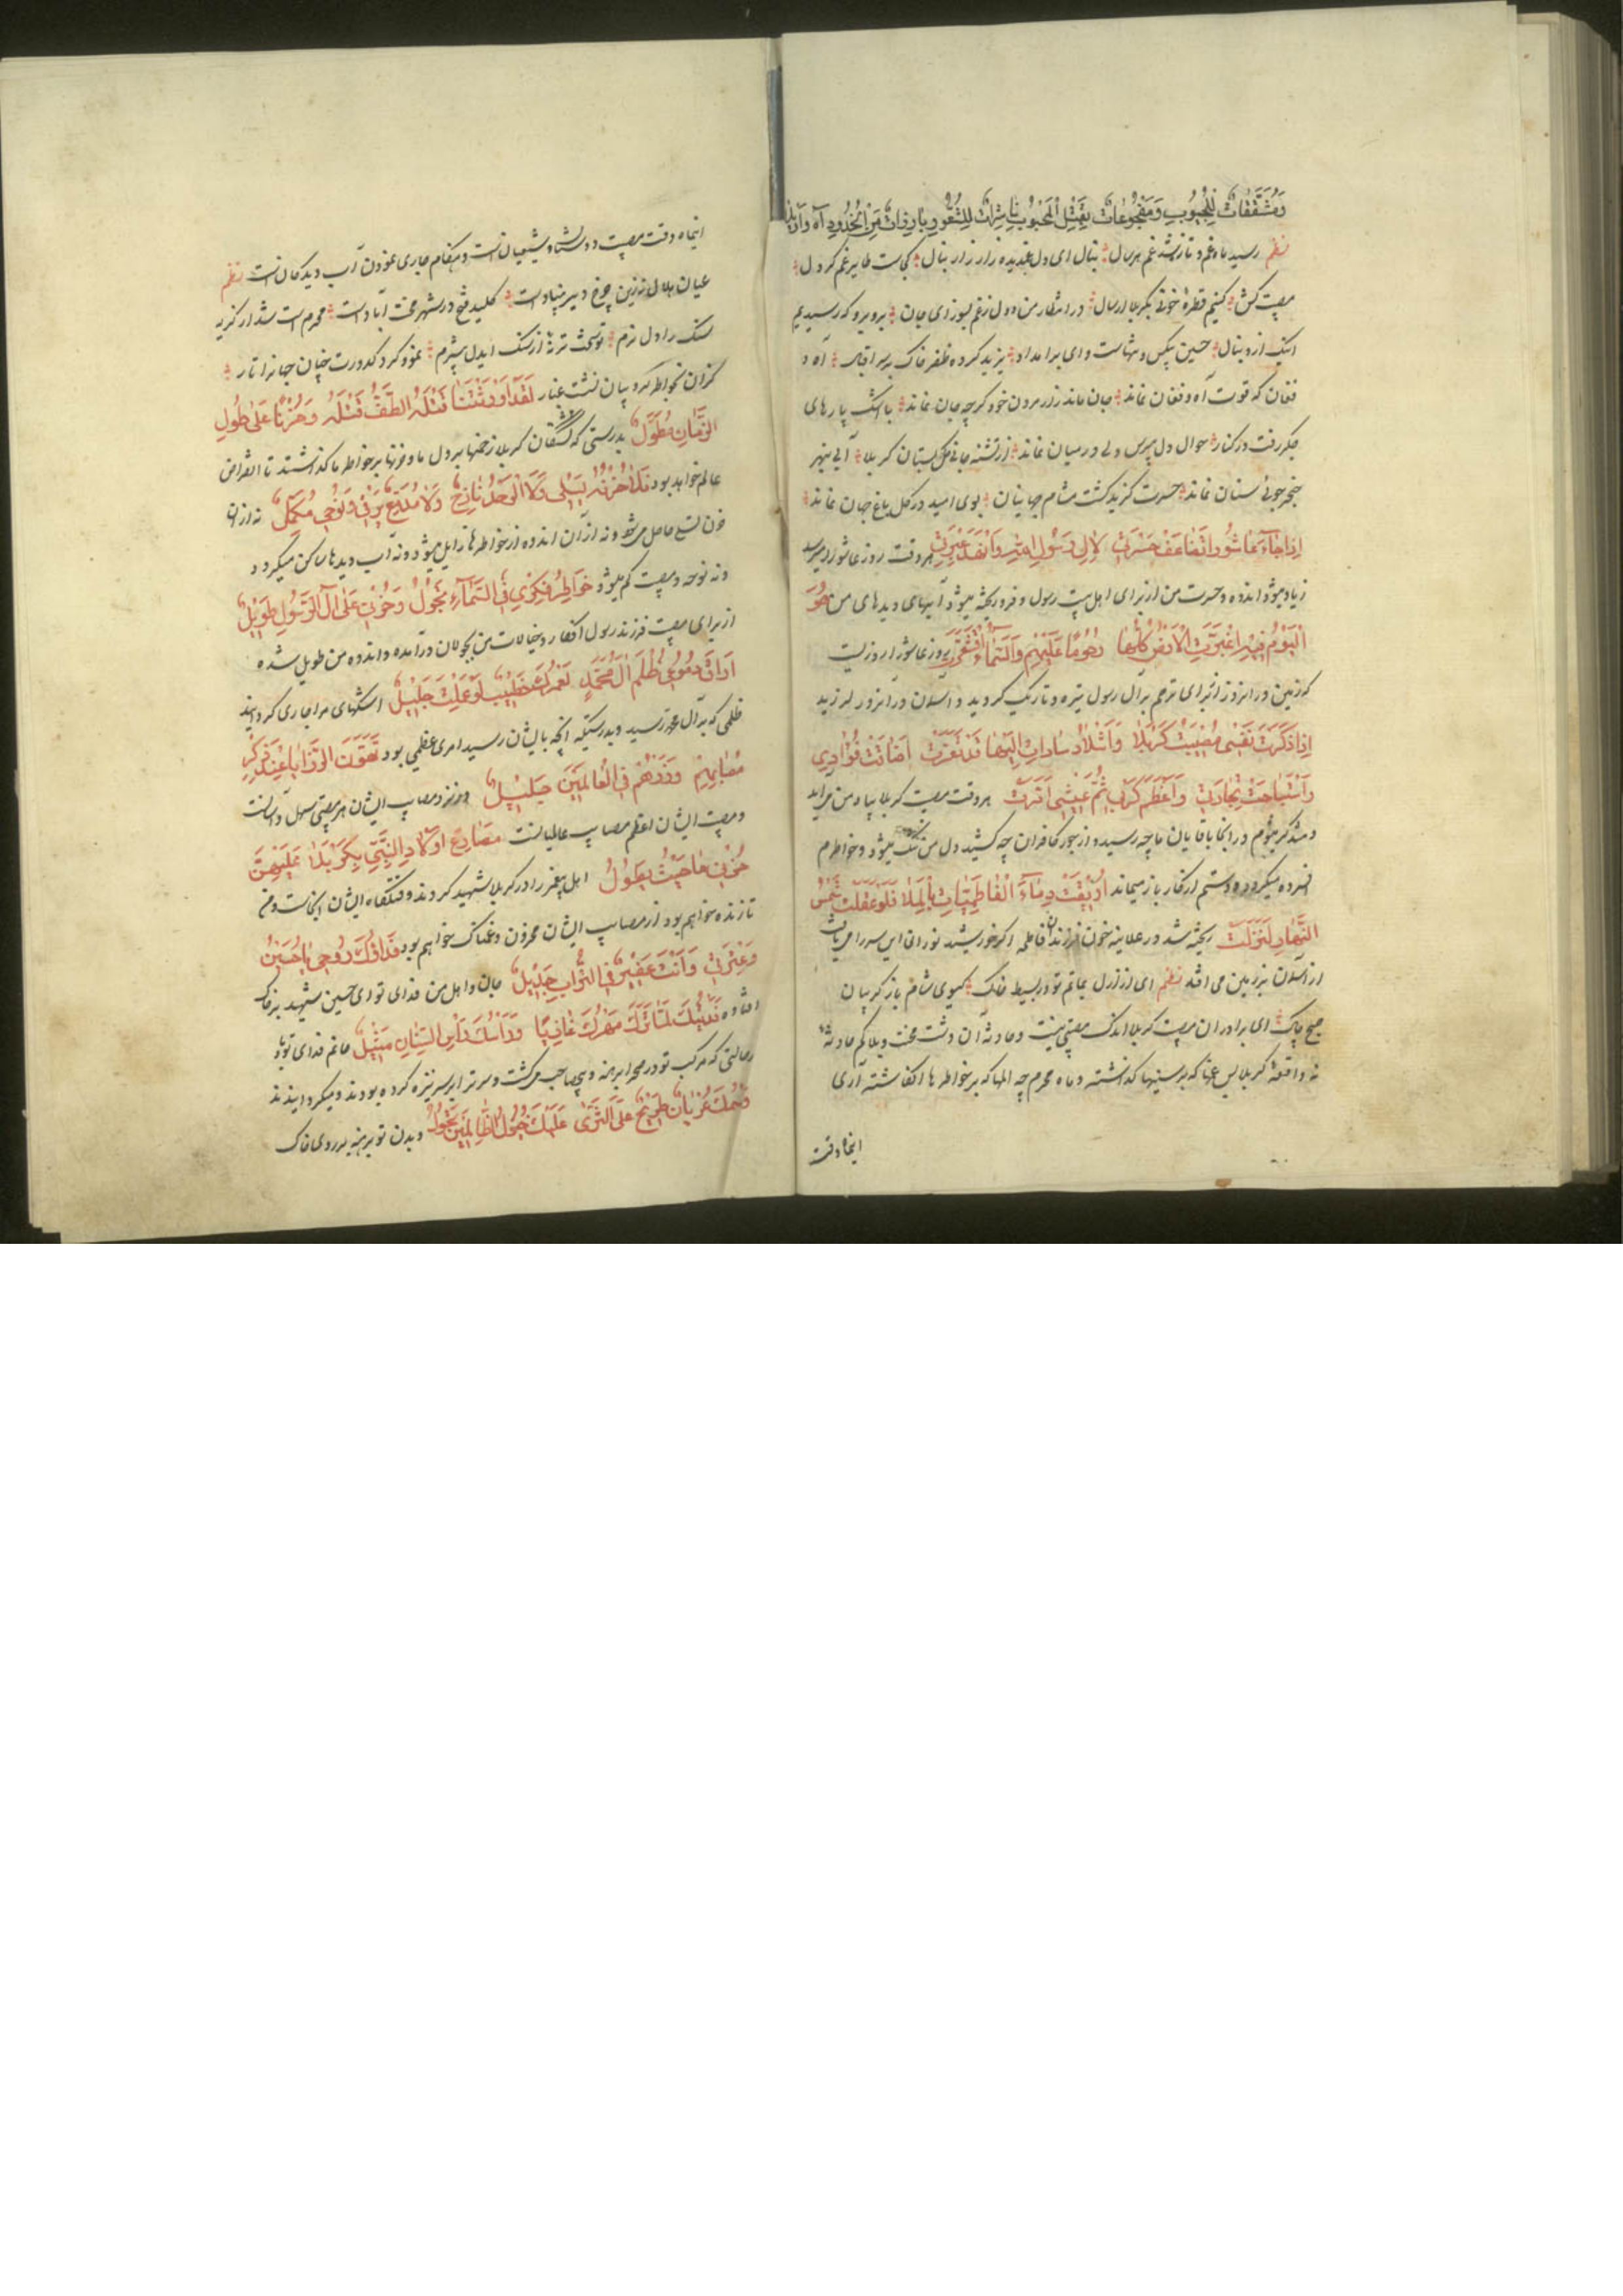 وَمُشَقَّقَاتٌ لِلْجُيُوبِ وَمَفْجُوعَاتٌ بِقَتْلِ الْمَحْبُوبِ نَاشِرَاتٌ لِلشُّعُورِ بَارِزَاتٌ مِنَ الْخُدُورِ آه وا
نظم رسید ماه غم و تازه شد غم هر سال بنال ای دل غمدیده زار زار بنال کجاست طایر غم کز دل
مصیبت کش کنیم قطره خونی بکربلا ارسال در انتظار من دل ز غم بسوز ای جان برو برو که رسیدیم
اینک از دنبال حسین بیکس و تنهاست وای برامداد یزید کرده ظفر خاک بر سر اقبال آه و
فغان که قوت آه و فغان نماند جان ماند زار مردن خود گرچه جان نماند با اشک پارهای
جگر رفت در کنار احوال دل مپرس ولی در میان نماند از تشنه جانی گلستان کربلا آبی بنهر
خنجر جوئی سنان نماند حسرت گزید گشت مشام جهانیان بوی امید در گل باغ جهان نماند
اِذَا جَاءَ عَاشُورَا تَضَاعَفَ حَسْرَتِي لِآلِ رَسُولِ اللهِ وَانْفَدَ عَبْرَتِي هر وقت روز عاشورا میرسد
زیاد میشود اندوه و حسرت من از برای اهل بیت رسول و فرو ریخته میشود آبهای دیدهای من هُوَ
الْيَوْمُ فِيهِ اغْبَرَّتِ الْاَرْضُ كُلُّهَا وُجُومًا عَلَيْهِمْ وَالسَّمَاءُ اقْشَعَرَّتِ روز عاشورا روزیست
که زمین در انروز از برای ترحم بر آل رسول تیره و تاریک گردید و آسمان در انروز لرزید
اِذَا ذَكَرَتْ نَفْسِي مُصِيبَةَ كَرْبَلَا وَاَشْلَاءَ سَادَاتٍ اِلَيْهَا قَدْ تَعَزَّتْ اَضَاقَتْ فُؤَادِي
وَاسْتَبَاحَتْ تِجَارَتِي وَاَعْظَمَ كَرْبِي ثُمَّ عَيْشِي اَمَرَّتْ هر وقت مصیبت کربلا بیاد من میاید
و متذکر میشوم در انجا باقایان ما چه رسید و از جور کافران چه کشید دل من تنگ میشود و خواطرم
افسرده میگردد و دستم از کار باز میماند اُرِيقَتْ دِمَاءُ الْفَاطِمِيَّاتِ بِالْمَلَا فَلَوْ عَقَلَتْ شَمْسُ
النَّهَارِ لَخَرَّتِ ریخته شد در علانیه خون فرزندان فاطمه اگر خورشید نورانی این سر را میافت
از آسمان بزمین می افتد نظم ای از ازل بماتم تو در بسیط خاک گیسوی شام باز گریبان
صبح چاک ای برادران مصیبت کربلا اندک مصیبتی نیست و حادثه آن دشت محنت و بلا کم حادثه
نه واقعه کربلا بس غمها که بر سینها گذاشته و ماه محرم چه المها که بر خواطرها انگاشته آری
اینماه وقت
اینماه وقت مصیبت دوستان و شیعیان است و هنگام جاری نمودن آب دیدگان است نظم
عیان هلال نه زین چرخ دیر بنیاد است کلید فتح در شهر محنت آباد است محرم است شد از گریه
سنگ را دل نرم تو سخت تر نه از سنگ ایدل بیشرم نمود گرد کدورت چنان جهانرا تار
کزان بخواطر کروبیان نشست غبار لَقَدْ اَوْرَثَتْنَا قَتْلَةُ الطَّفِّ قَتْلَهُ وَحُزْنًا عَلَى طُولِ
الزَّمَانِ مُطَوَّلٌ بدرستی که کشتگان کربلا زخمها بر دل ما و حزنها بر خواطر ما گذاشتند تا انقراض
عالم خواهد بود فَلَا حُزْنُهُ يَبْلَى وَلَا الْوَجْدُ نَازِحٌ وَلَا مَدْمَعٌ يَرْقَى وَنَوْحِي مُكَمَّلٌ نه از ان
حزن تسلی حاصل میشود نه از آن اندوه از خواطرها زایل میشود و نه آب دیدها ساکن میگردد
و نه نوحه و مصیبت کم میشود خَوَاطِرُ فِكْرِي فِي السَّمَاءِ تَجُولُ وَحُزْنِي عَلَى آلِ الرَّسُولِ طَوِيلٌ
از برای مصیبت فرزند رسول افکار و خیالات من بجولان درآمده و اندوه من طویل شده
اَرَاقَ دُمُوعِي ظُلْمُ آلِ مُحَمَّدٍ لَعَمْرُكَ خَطْبٌ لَوْ عَلِمْتَ جَلِيلٌ اشکهای مرا جاری گردانید
ظلمی که بر آل محمد رسید و بدرستیکه انچه بایشان رسید امری عظیمی بود تَهُونُ الرَّزَايَا عِنْدَ ذِكْرِ
مُصَابِهِمْ وَرُزْؤُهُمْ فِي الْعَالَمِينَ جَلِيلٌ و نزد مصایب ایشان هر مصیبتی سهل و آسانست
و مصیبت ایشان اعظم مصایب عالمیانست مَصَارِعُ اَوْلَادِ النَّبِيِّ بِكَرْبَلَا عَلَيْهِمْ
حُزْنِي مَا حَيِيتُ يَطُولُ اهل پیغمبر را در کربلا شهید کردند و قتلگاه ایشان انجاست و من
تا زنده خواهم بود از مصایب ایشان محزون و غمناک خواهم بود فَدَاؤُكَ رُوحِي يَا حُسَيْنُ
وَعِتْرَتِي وَاَنْتَ عَفِيرٌ فِي التُّرَابِ جَدِيلٌ جان و اهل من فدای تو ای حسین شهید بر خاک
افتاده فَدَيْتُكَ لَمَّا مَرَّ مُهْرُكَ عَارِيًا وَرَأْسُكَ رَأْسِ السِّنَانِ مَثِيلٌ جانم فدای تو باد
در حالتی که مرکب تو در صحرا برهنه و بیصاحب میگشت و سر ترا بر سر نیزه کرده بودند و میگردانیدند
وَجِسْمُكَ عُرْيَانٌ طَرِيحٌ عَلَى الثَّرَى عَلَيْكَ خُيُولُ الظَّالِمِينَ تَجُولُ و بدن تو برهنه بر روی خاک